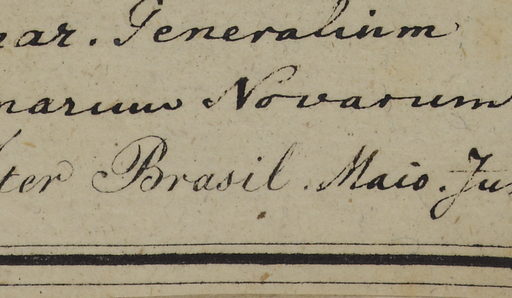 ear. Generalium
narum Novarum
ter Brasil. Maio. Ju